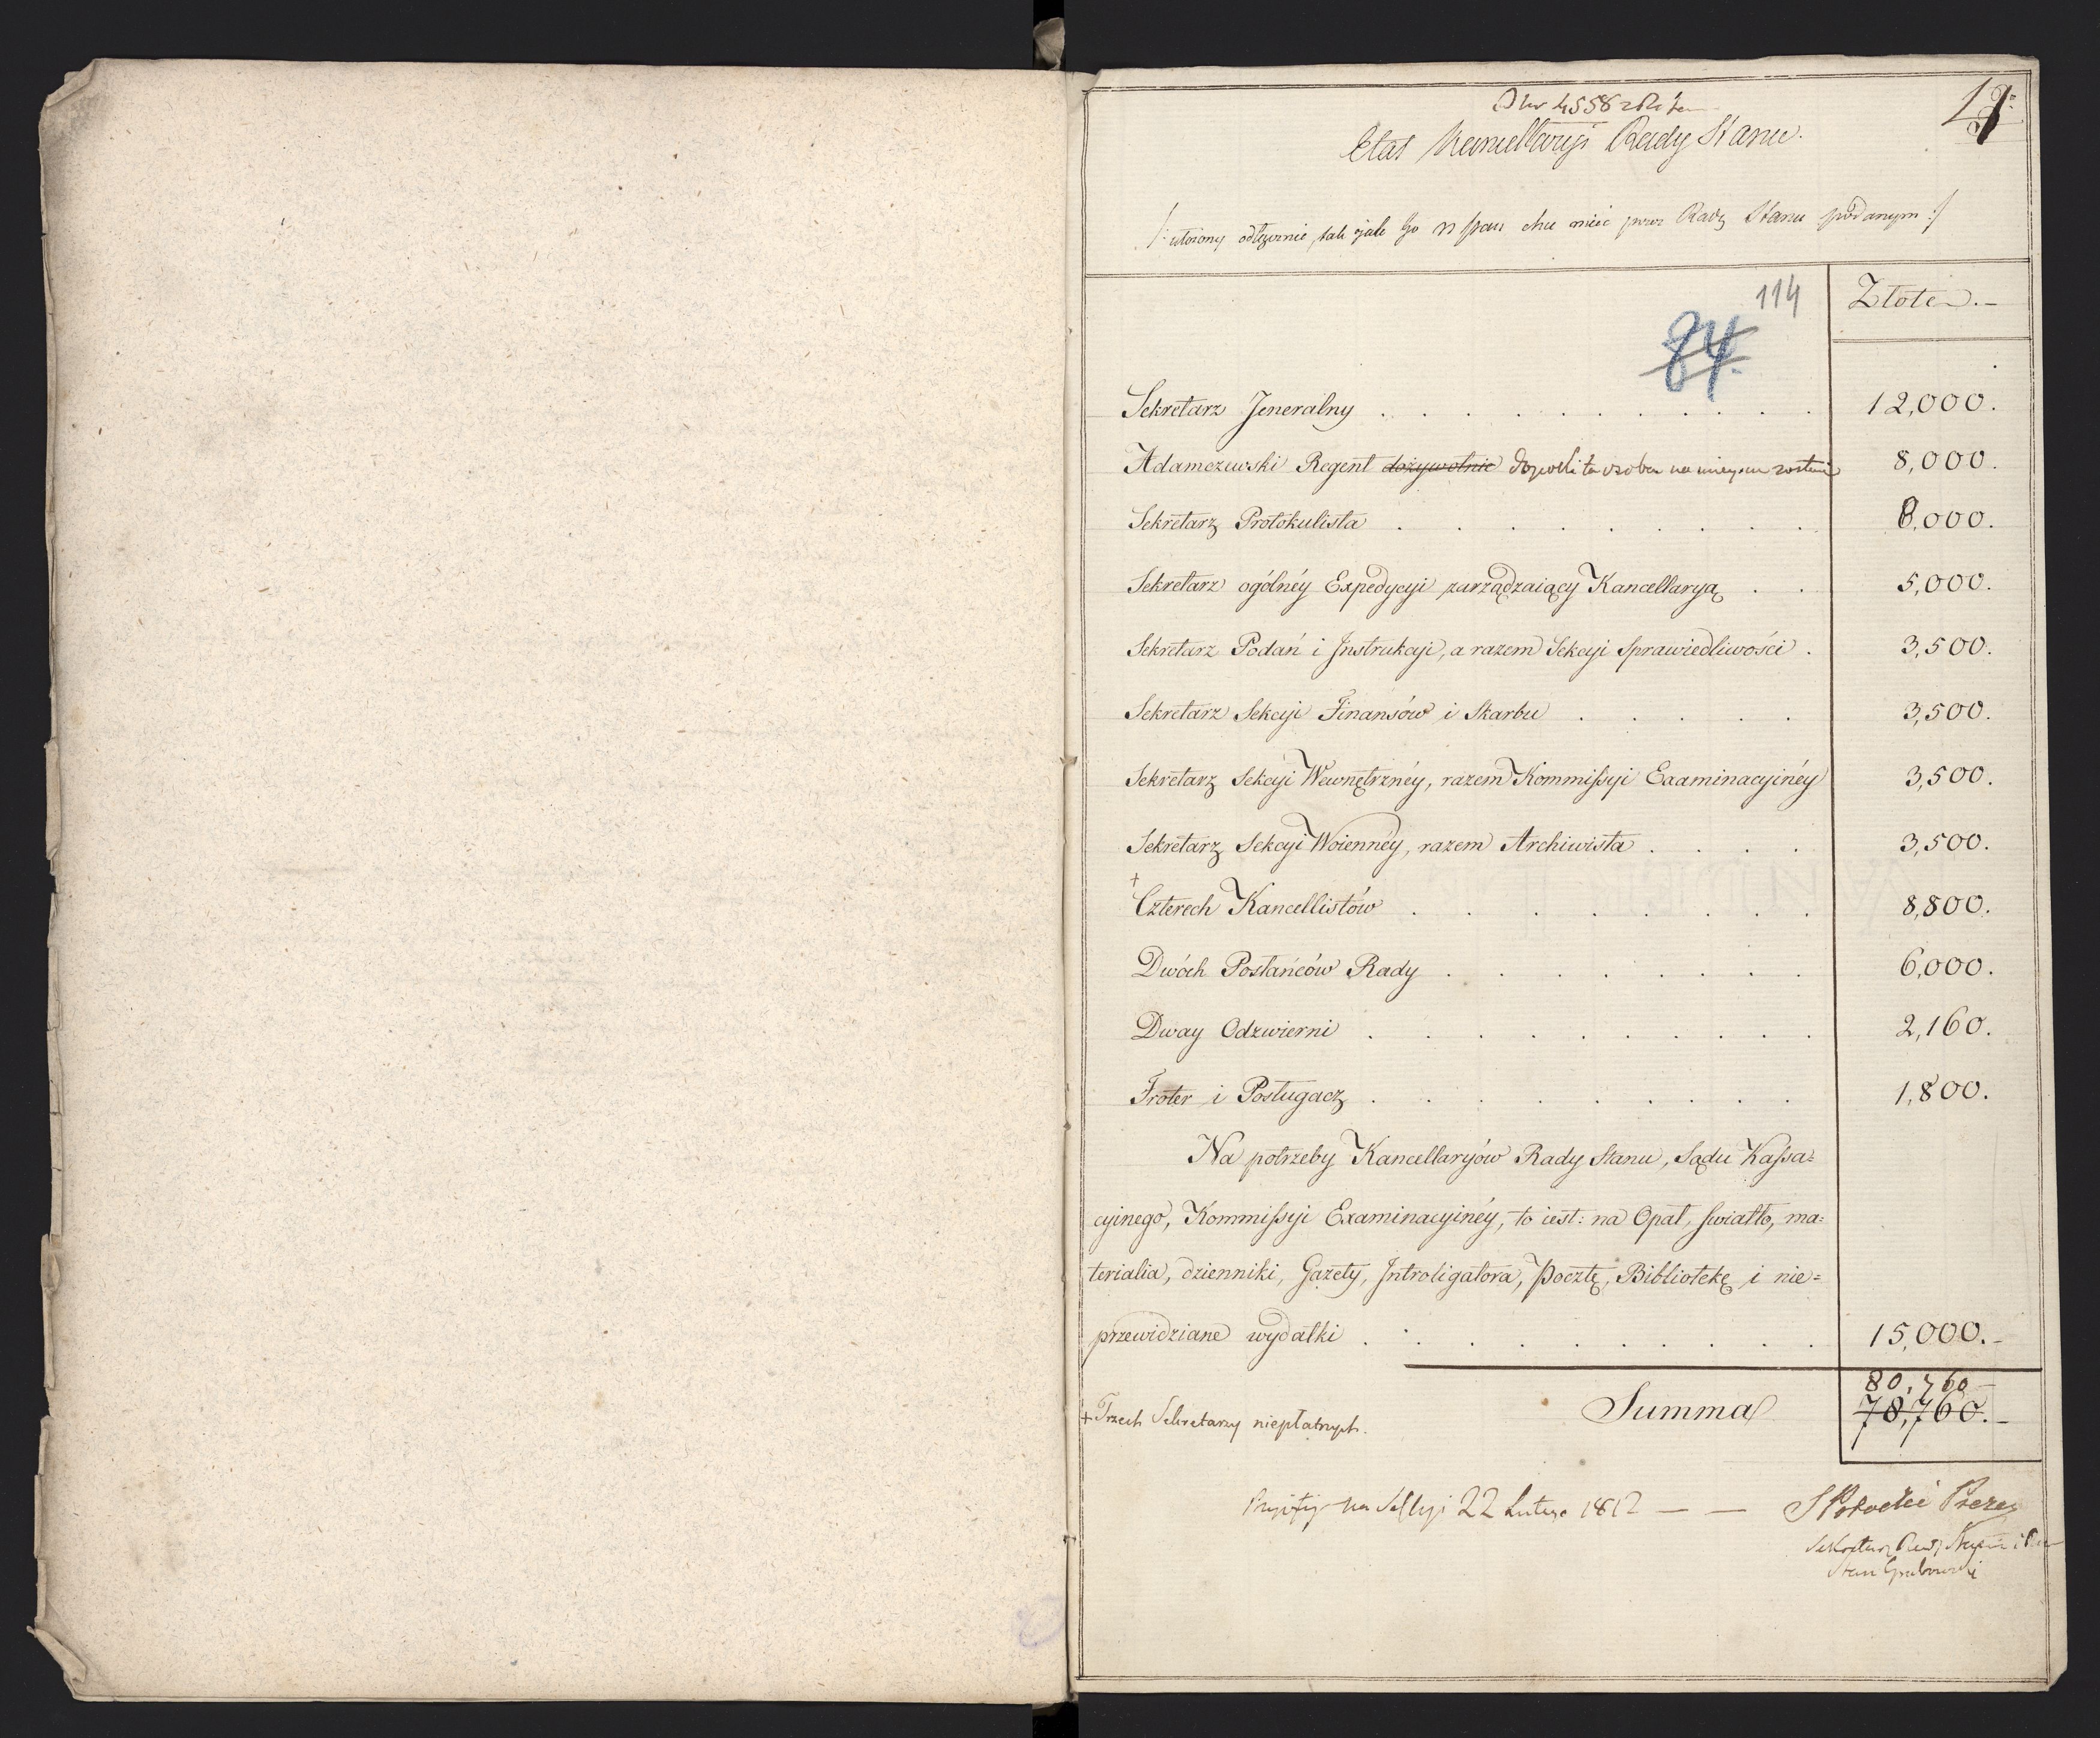 Etat Kancellaryi Rady Stanu.
tak jak Go chce mieć przez Radę Stanu podanym :/
114
84.
Złote.-
Sekretarz Jeneralny . . . . . . . . . 12,000.
Adamczewski Regent dożywotnie dopóki ta osoba na mieyscu zostanie 8,000.
Sekretarz Protokulista . . . . . . . . 8,000.
Sekretarz ogólnéy Expedycyi zarządzaiący Kancellaryą . . 5,000.
Sekretarz Podań i Instrukcyi, a razem Sekcyi Sprawiedliwości . 3,500.
Sekretarz Sekcyi Finansów i Skarbu . . . . . 3,500.
Sekretarz Sekcyi Wewnętrznéy, razem Kommissyi Examinacyinéy 3,500.
Sekretarz Sekcyi Woiennéy, razem Archiwista . . . . 3,500.
+ Czterech Kancellistów . . . . . . . . 8,800.
Dwóch Posłańców Rady . . . . . . . 6,000.
Dway Odzwierni . . . . . . . . . 2,160.
Froter i Posługacz . . . . . . . . . 1,800.
Na potrzeby Kancellaryów Rady Stanu, Sądu Kassa=
cyinego, Kommissyi Examinacyinéy, to iest: na Opał, światło, ma=
terialia, dzienniki, Gazety, Introligatora, Pocztę, Bibliotekę i nie=
przewidziane wydatki . . . . . . . . . 15,000.-
80,760-
Summa 78,760.-
+ Trzech Sekretarzy niepłatnych.
na Sessyi 22 Lutego 1812 — — S Potocki Prezes
Sekretarz Rady Stanu i
Stan Grabowski